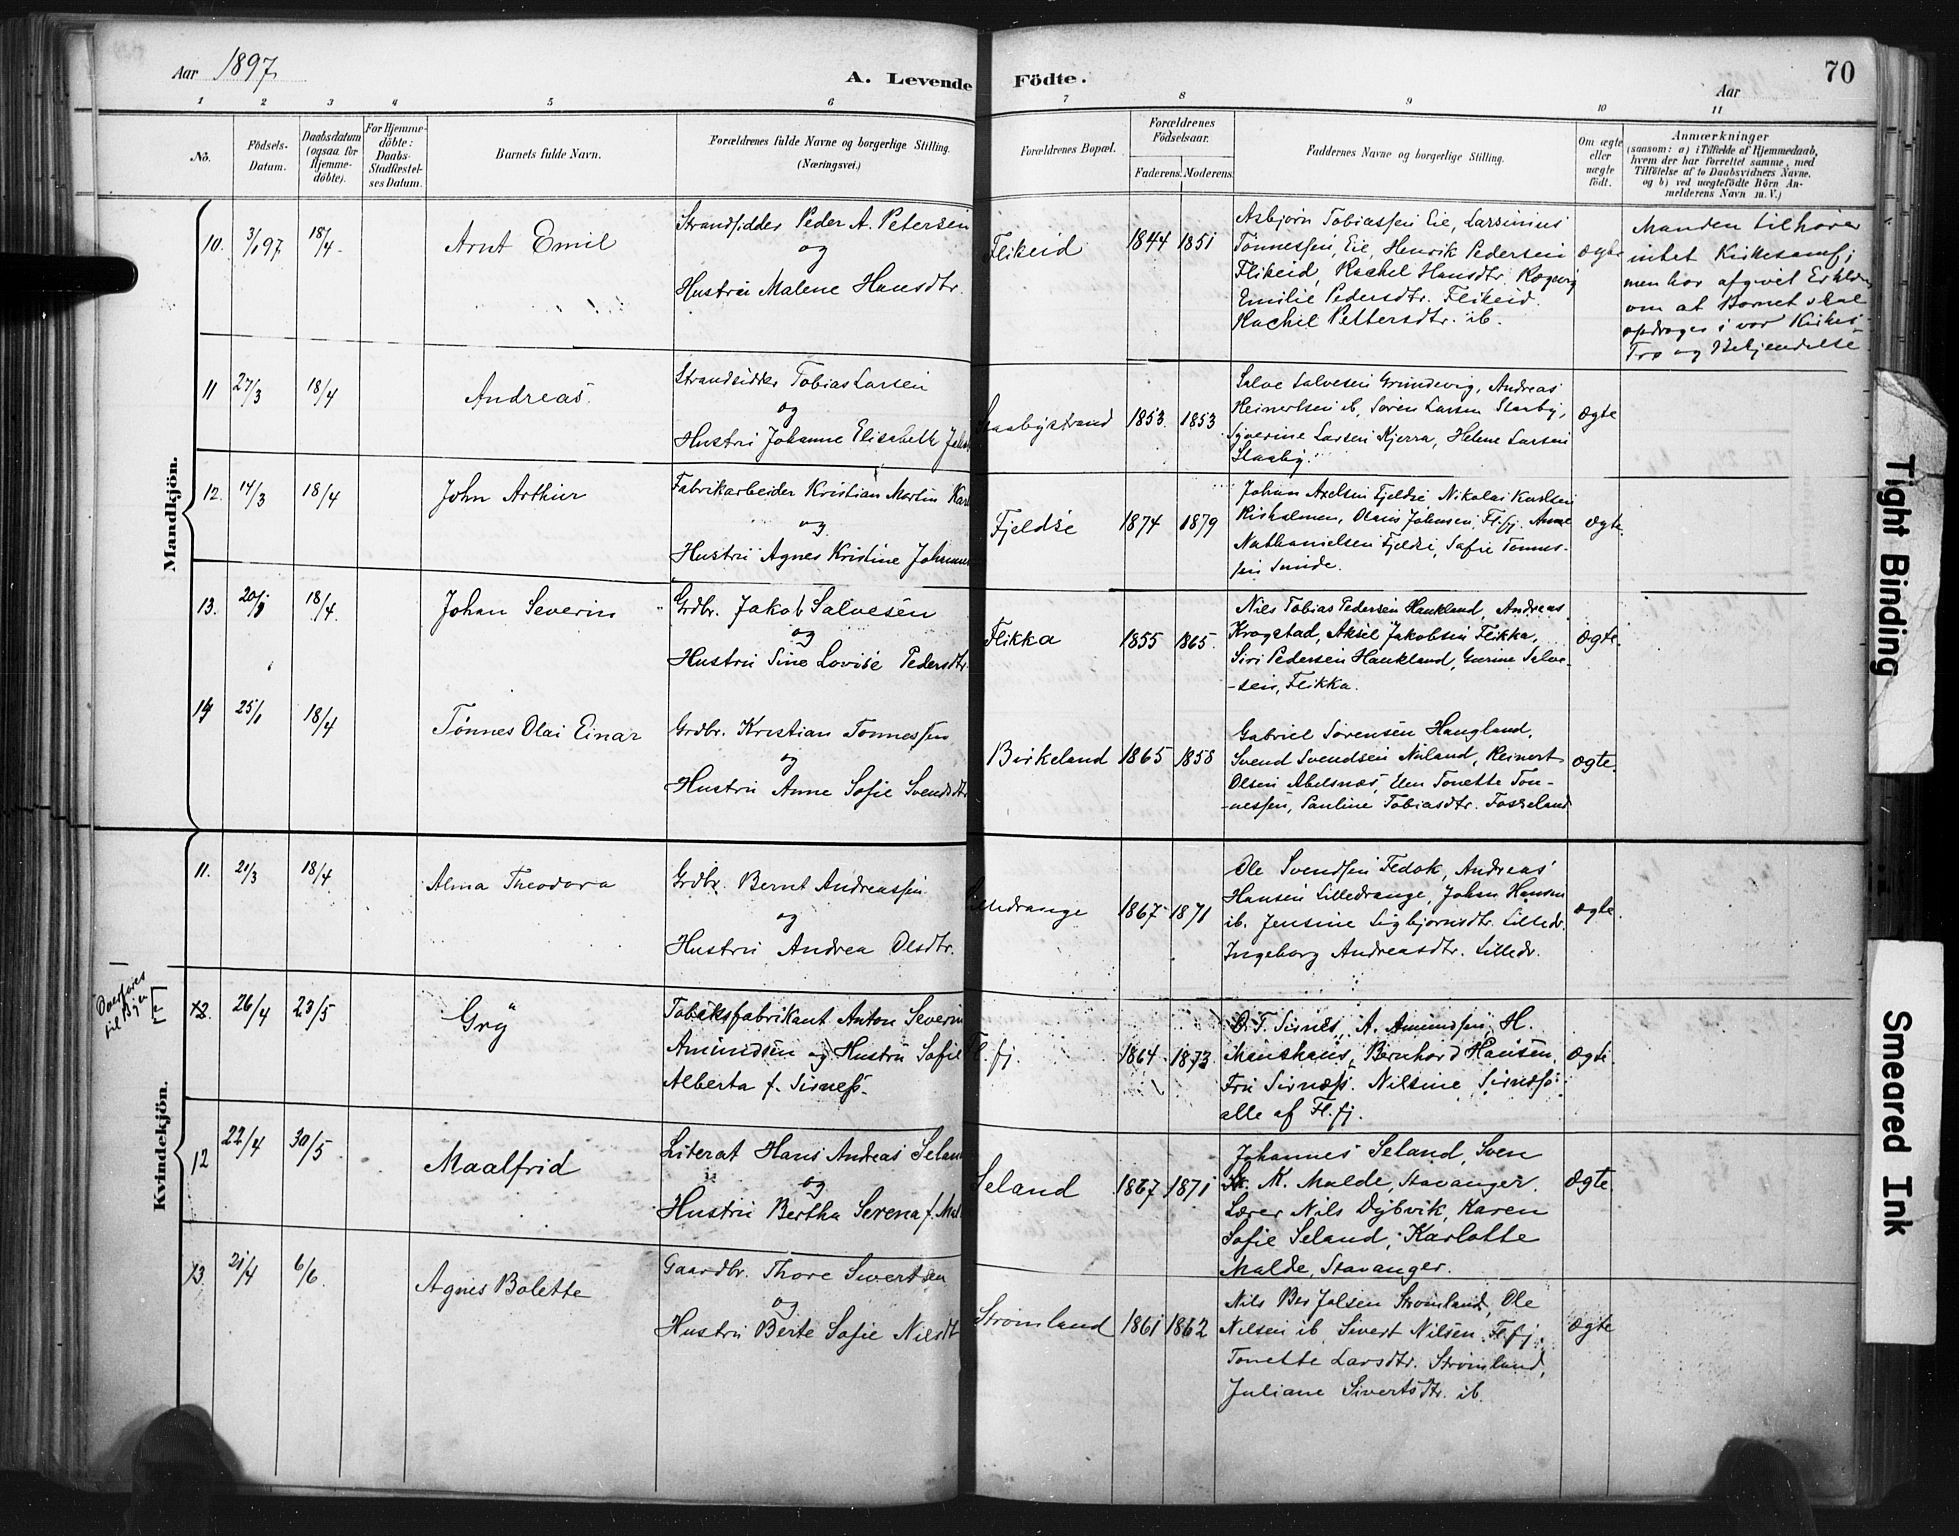 Aar 1897.
A. Levende Födte.
Aar
70
1 2 3 4 5 6 7 8 9 10 11
No.
Födsels-Datum.
Daabsdatum (ogsaa for Hjemme-döbte).
For Hjemme-döbte: Daabs-Stadfæstel-ses Datum.
Barnets fulde Navn.
Forældrenes fulde Navne og borgerlige Stilling. (Næringsvei.)
Forældrenes Bopæl.
Forældrenes Födselsaar.
Faderens. Moderens.
Faddernes Navne og borgerlige Stilling.
Om ægte eller uægte födt.
Anmærkninger
(saasom: a) i Tilfælde af Hjemmedaab, hvem der har forrettet samme, med Tilföielse af to Daabsvidners Navne. og b) ved uægtefödte Börn An-melderens Navn m. V.)
Mandkjön.
10. 3/1 97 18/4 Arnt Emil
Strandsidder Peder A. Petersen
og
Hustru Malene Hansdtr.
Flikeid 1844 1851
Asbjørn Tobiassen Eie, Larsinius
Tønnessen, Eie, Henrik Pedersen
Flikeid, Rachel Hansdtr. Rægevig
Emilie Pedersdtr. Flikeid.
Rachel Pettersdtr. ib.
ægte
Manden tilhører
intet Kirkesamf;
men har afgivet Erklær
om at Barnet skal
opdrages i vor Kirkes
Tro og Bekjendelse.
11 27/3 18/4 Andreas.
Strandsidder Tobias Larsen
og
Hustru Johanne Elisabeth
Staabystrand 1853. 1853.
Salve Salvesen Grundevig, Andreas
Reinertsen ib, Søren Larsen Staaby,
Syverine Larsen Kjerra, Helene Larsen
Staaby.
ægte
12. 14/3 18/4 John Arthur
Fabrikarbeider Kristian Martin Karl
og
Hustru Agnes Kristine Johanne
Fjeldse 1874 1879
Johan Axelsen Fjeldse Nikolai Karlsen
Risholmen, Olaus Johnsen, Fl.fj. Anne
Nathanielsen Fjeldse, Sofie Tønnes-
sen Sunde.
ægte.
13. 20/3 18/4. Johan Severin
Grdbr. Jakob Salvesen
og
Hustru Sine Lovise Pedersdtr.
Flikka 1855 1865.
Nils Tobias Pedersen Haukland, Andreas
Krogstad, Aksel Jakobsen Flikka,
Siri Pedersen Haukland, Gurine Salve-
-sen, Flikka.
ægte.
14 25/1 18/4 Tønnes Olai Einar
Grdbr. Kristian Tønnessen
og
Hustru Anne Sofie Svendsdtr
Birkeland 1865 1858
Gabriel Sørensen Haugland,
Svend Svendsen Nuland, Reinert
Olsen Abelsnæs, Elen Tonette Tøn-
-nessen, Pauline Tobiasdtr. Fosseland
ægte.
Kvindekjön.
11. 21/3 18/4. Alma Theodora
Grdbr. Bernt Andreassen
og
Hustru Andrea Olsdtr.
Lilledrange 1867 1871
Ole Svendsen Fedok, Andreas
Hansen Lilledrange, Johan Hansen
ib. Jensine Sigbjørnsdtr. Lilledr.
Ingeborg Andreasdtr. Lilledr.
ægte.
Overføres
til Byen
12. 26/4 23/5 Gry
Tobaksfabrikant Anton Severin
Amundsen og Hustru Sofie
Alberta f. Sirness.
Fl.fj. 1864 1873
O. T. Sirnes, A. Amundsen, H.
Maushaus, Bernhard Hansen,
Fru Sirness. Nilsine Sirness
alle af Fl.fj.
ægte.
12 22/4 30/5 Maalfrid
Literat Hans Andreas Seland
og
Hustru Bertha Serena f. Mal
Seland 1867 1871
Johannes Seland, Sven
K. Malde, Stavanger.
Lærer Nils Dybvik, Karen
Sofie Seland, Karlotte
Malde, Stavanger.
ægte.
13. 21/4 6/6. Agnes Bolette
Gaardbr. Thore Sivertsen
og
Hustru Berte Sofie Nilsdt
Strømland 1861 1862
Nils Jalsen Strømland, Ole
Nilsen ib Sivert Nilsen Fl.fj.
Tonette Larsdtr. Strømland,
Juliane Sivertsdtr. ib.
ægte
Tight Binding
Smeared Ink